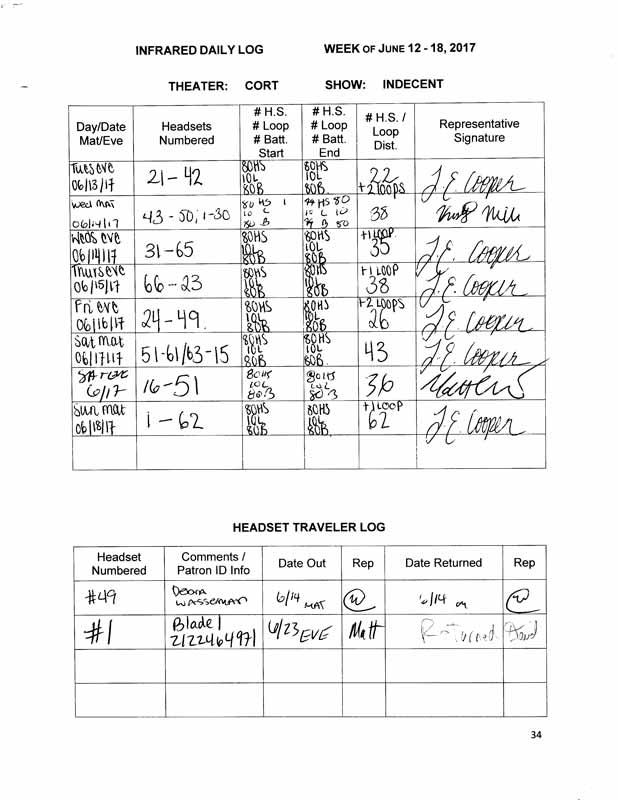 INFRARED DAILY LOG WEEK OF JUNE 12 - 18, 2017
THEATER: CORT SHOW: INDECENT
Day/Date Mat/Eve Headsets Numbered # H.S. # Loop # Batt. Start # H.S. # Loop # Batt. End # H.S. / Loop Dist. Representative Signature
Tues eve 06/13/17 21-42 80HS 10L 80B 80HS 10L 80B 22 +2 LOOPS J.E. Cooper
Wed mat 06/14/17 43-50; 1-30 80 HS 10 L 80 B 79 HS 80 10 L 10 79 B 80 38
Weds eve 06/14/17 31-65 80HS 10L 80B 80HS 10L 80B +1 LOOP 35 J.E. Cooper
Thurs eve 06/15/17 66-23 80HS 10L 80B 80HS 10L 80B +1 LOOP 38 J.E. Cooper
Fri eve 06/16/17 24-49 80HS 10L 80B 80HS 10L 80B +2 LOOPS 26 J.E. Cooper
Sat mat 06/17/17 51-61/63-15 80HS 10L 80B 80HS 10L 80B 43 J.E. Cooper
SAT EVE 6/17 16-51 80HS 10L 80B 80HS 10L 80B 36
Sun mat 06/18/17 1-62 80HS 10L 80B 80HS 10L 80B +1 LOOP 62 J.E. Cooper
HEADSET TRAVELER LOG
Headset Numbered Comments / Patron ID Info Date Out Rep Date Returned Rep
#49 Debra WASSERMAN 6/14 MAT 6/14
#1 Blade 1 2122464971 6/23 EVE Matt Returned David
34